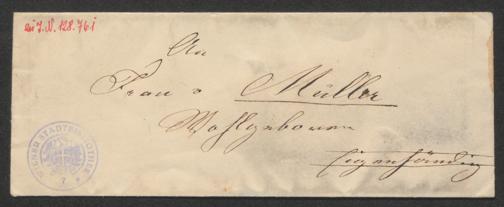 zu J.N. 128.761
An
Frau v Müller
Wohlgeboren
Eigenhändig
WIENER STADTBIBLIOTHEK